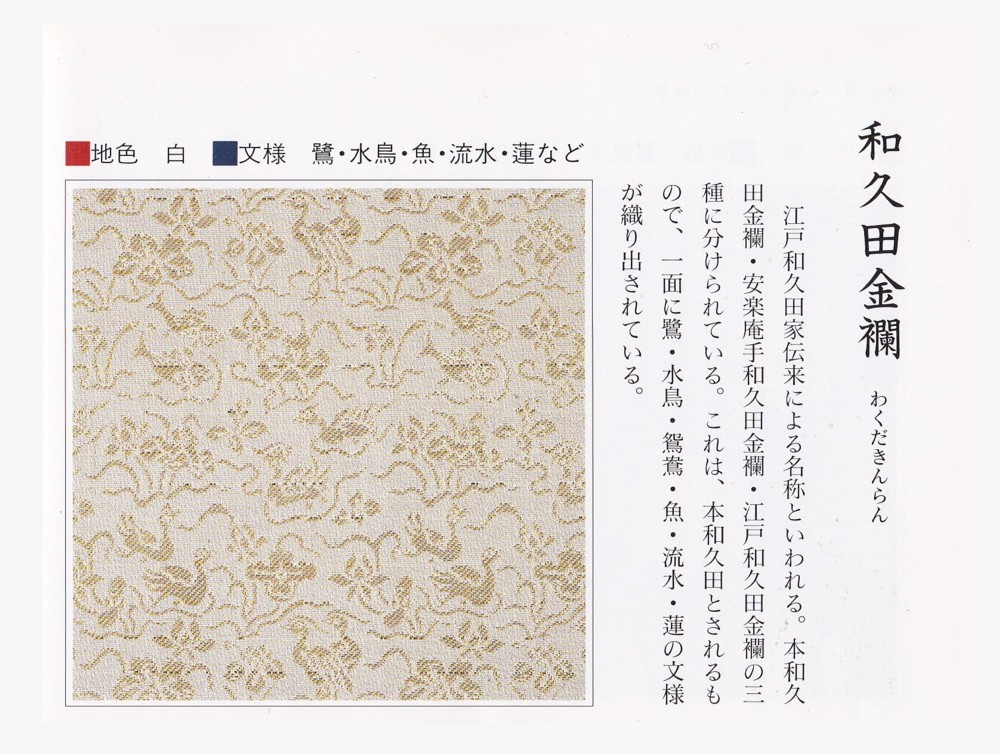 和久田金襴 わくだきんらん
江戸和久田家伝来による名称といわれる。本和久
田金襴・安楽庵手和久田金襴・江戸和久田金襴の三
種に分けられている。これは、本和久田とされるも
ので、一面に鷺・水鳥・鴛鴦・魚・流水・蓮の文様
が織り出されている。
■地色 白 ■文様 鷺・水鳥・魚・流水・蓮など